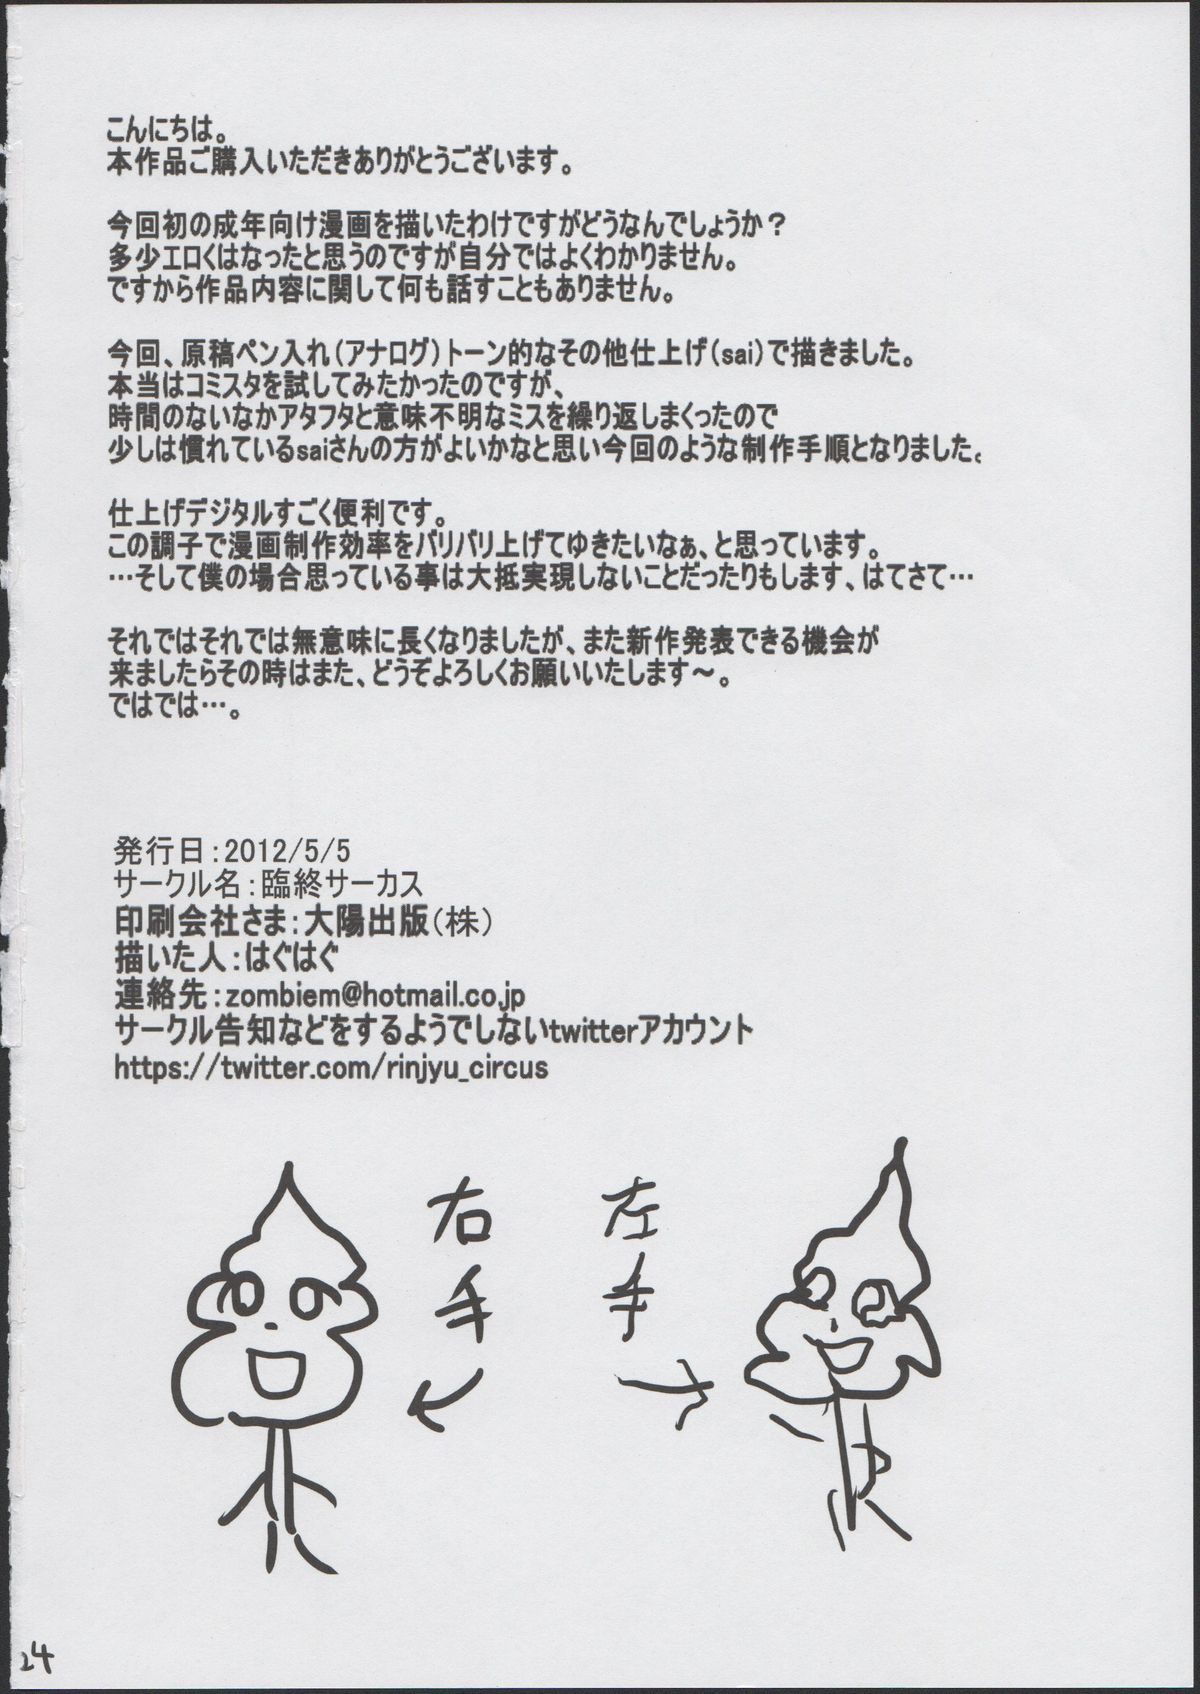 こんにちは。
本作品ご購入いただきありがとうございます。
今回初の成年向け漫画を描いたわけですがどうなんでしょうか？
多少エロくはなったと思うのですが自分ではよくわかりません。
ですから作品内容に関して何も話すこともありません。
今回、原稿ペン入れ（アナログ）トーン的なその他仕上げ（sai）で描きました。
本当はコミスタを試してみたかったのですが、
時間のないなかアタフタと意味不明なミスを繰り返しまくったので
少しは慣れているsaiさんの方がよいかなと思い今回のような制作手順となりました。
仕上げデジタルすごく便利です。
この調子で漫画制作効率をバリバリ上げてゆきたいなぁ、と思っています。
…そして僕の場合思っている事は大抵実現しないことだったりもします、はてさて…
それではそれでは無意味に長くなりましたが、また新作発表できる機会が
来ましたらその時はまた、どうぞよろしくお願いいたします～。
ではでは…。
発行日：2012/5/5
サークル名：臨終サーカス
印刷会社さま：大陽出版（株）
描いた人：はぐはぐ
連絡先：zombiem@hotmail.co.jp
サークル告知などをするようでしないtwitterアカウント
https://twitter.com/rinjyu_circus
右手
左手
24